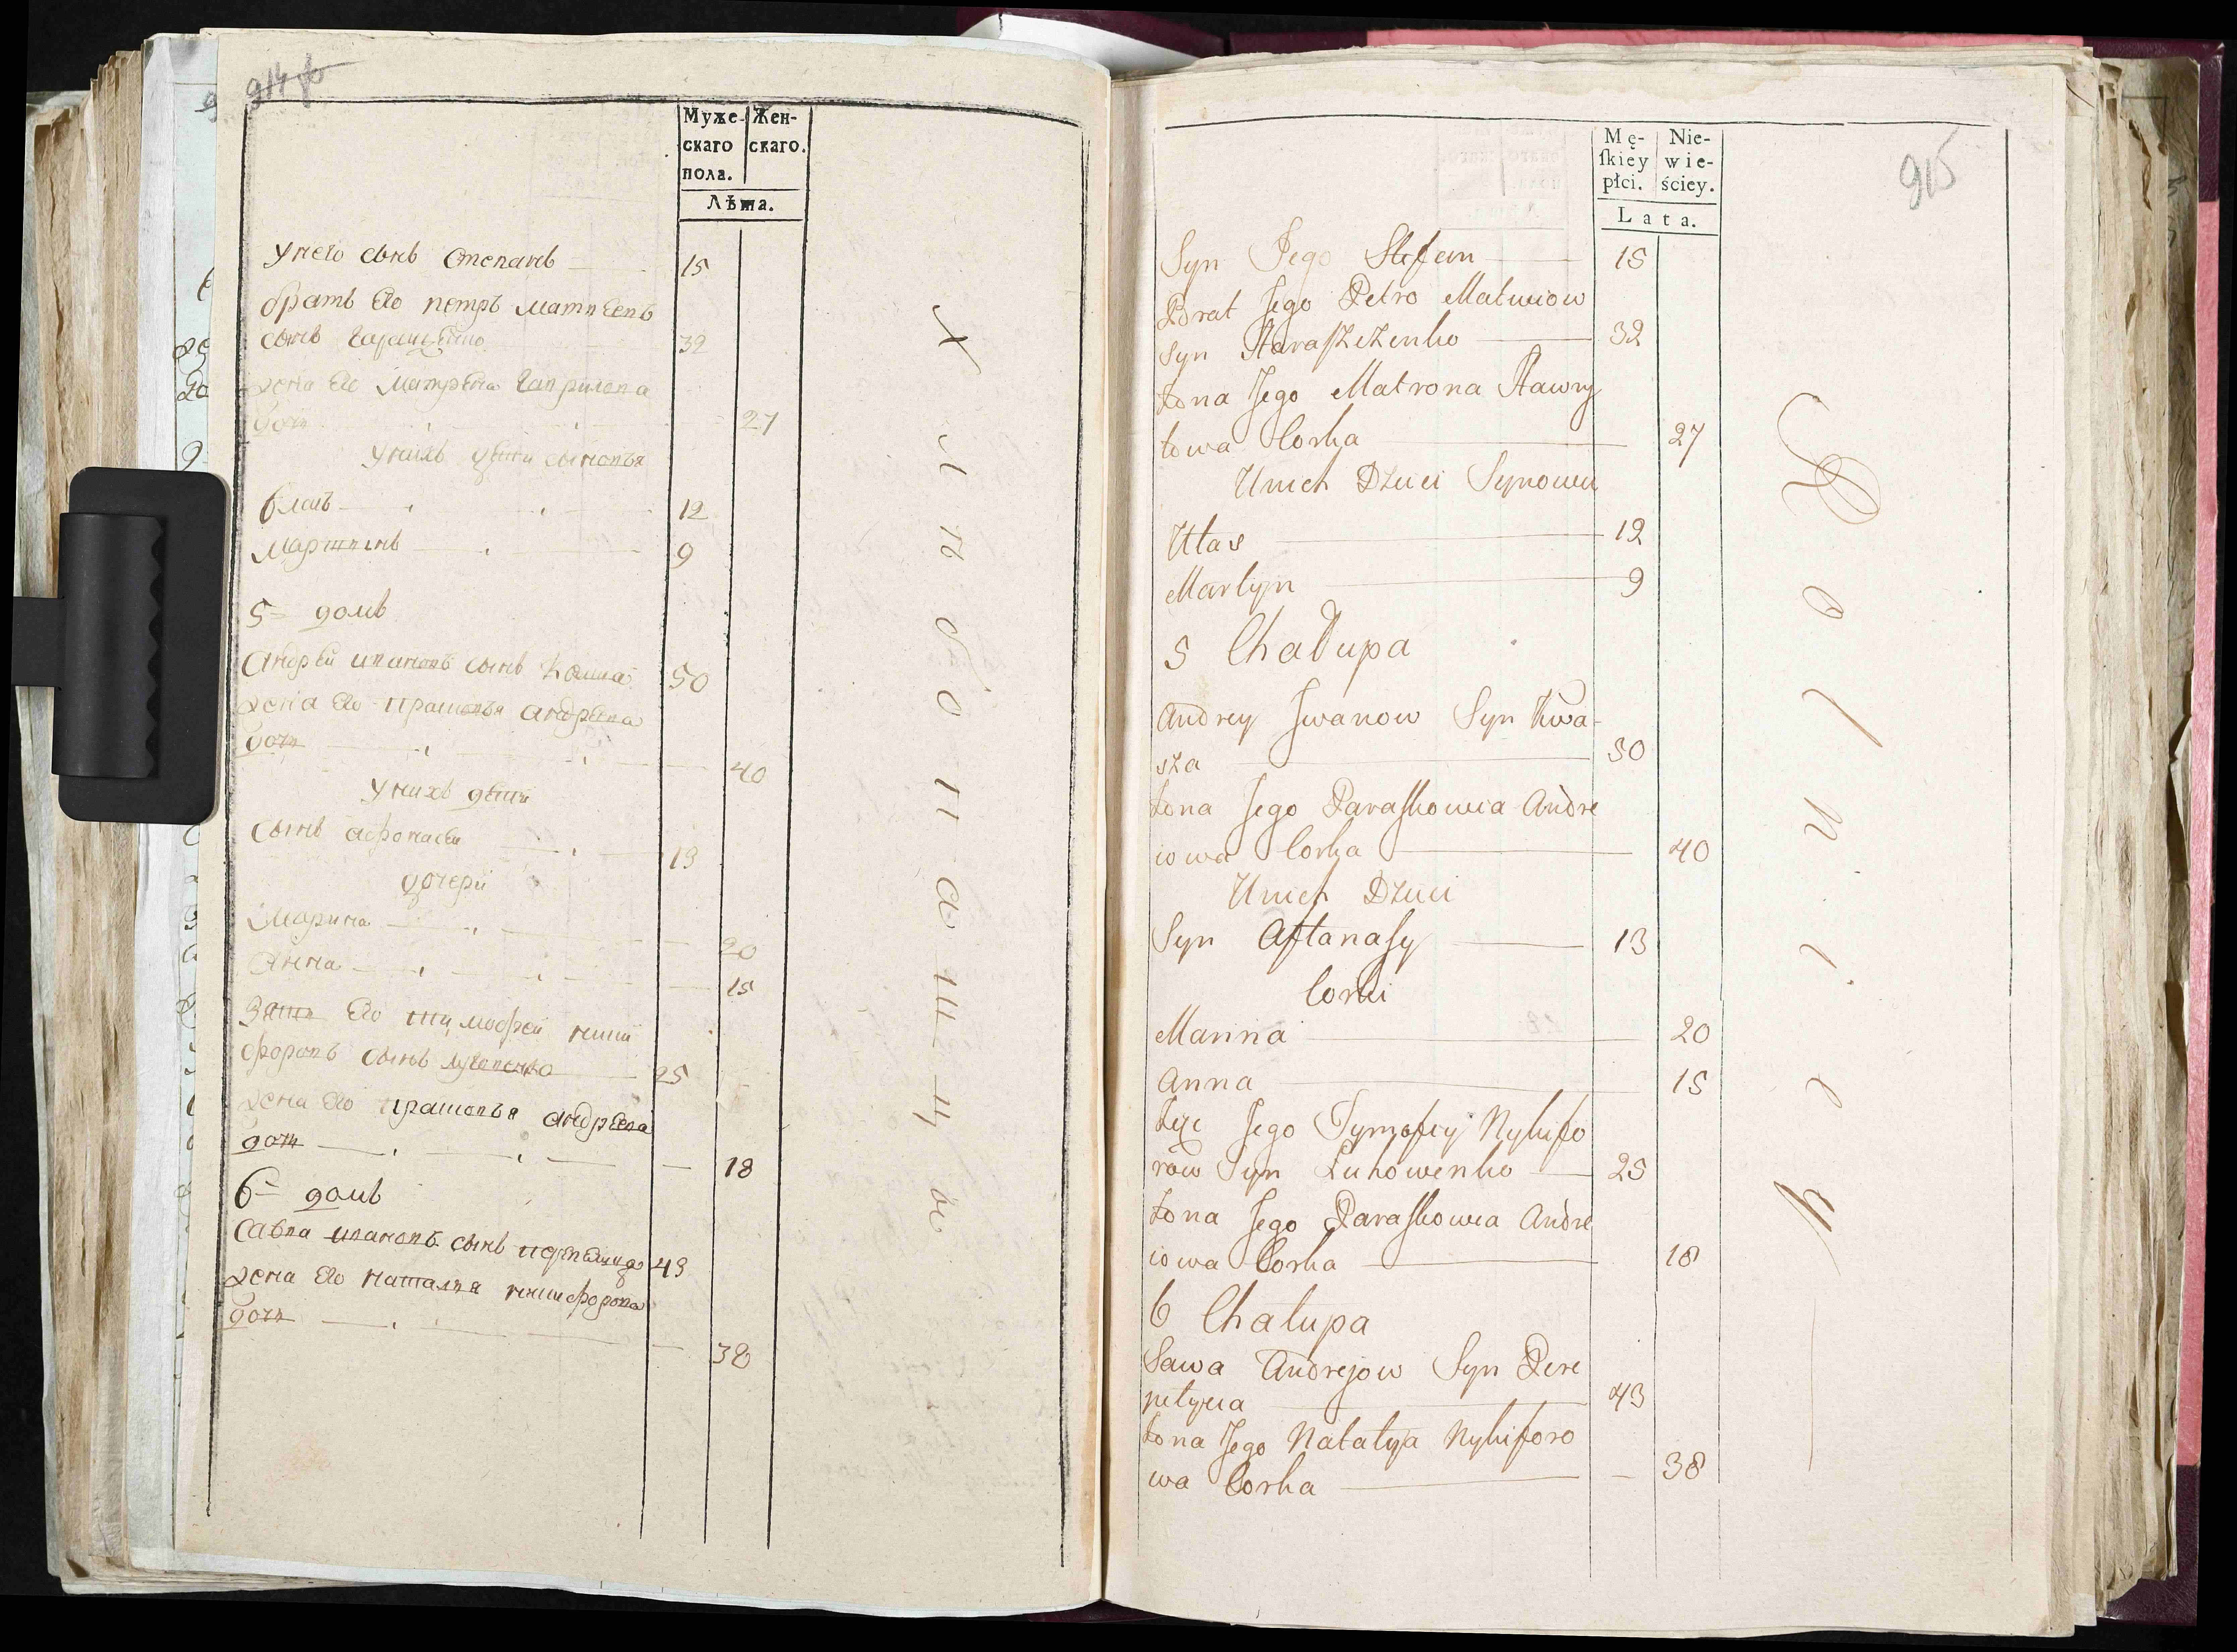 914 об
Муже- Жен-
скаго скаго.
пола.
Лѣта.
Унего сынъ Степанъ 15
братъ Его петръ матвѣевъ
сынъ Гаращенко 32
жена Его Матрѣна Гаврилова
дочь 27
Унихъ дѣти сыновья
Власъ 12
Мартинъ 9
5 домъ
Андрѣй ивановъ сынъ Кваша 50
жена Его прасковья андрѣева
дочь 40
Унихъ дѣти
сынъ афонасѣй 13
дочери
Марина 20
Анна 15
Зять Его тимофѣй ники
форовъ сынъ луговенко 25
жена Его прасковья андрѣева
дочь 18
6 домъ
Савва ивановъ сынъ 43
жена Его наталья никифорова
дочь 38
Х л ѣ б о п а ш ц ы
915
Mę- Nie-
skiey wie-
płci. ściey.
Lata.
Syn Jego Stefan 15
Brat Jego Petro Matwiow
Syn Haraszczenko 32
Żona Jego Matrona Hawry
łowa Corka 27
Unich Dzieci Synowie
Ułas 12
Martyn 9
5 Chałupa
Andrey Jwanow Syn Kwa-
sza 50
Żona Jego Paraskowia Andre
iowa Corka 40
Unich Dzieci
Syn Aftanasy 13
Corki
Marina 20
Anna 15
Zięć Jego Tymofiey Nykifo
rów Syn Luhowenko 25
Żona Jego Paraskowia Andre
iowa Corka 18
6 Chałupa
Sawa Andrejow Syn Pere
43
Żona Jego Natalya Nykiforo
wa Corka 38
R o l n i c y